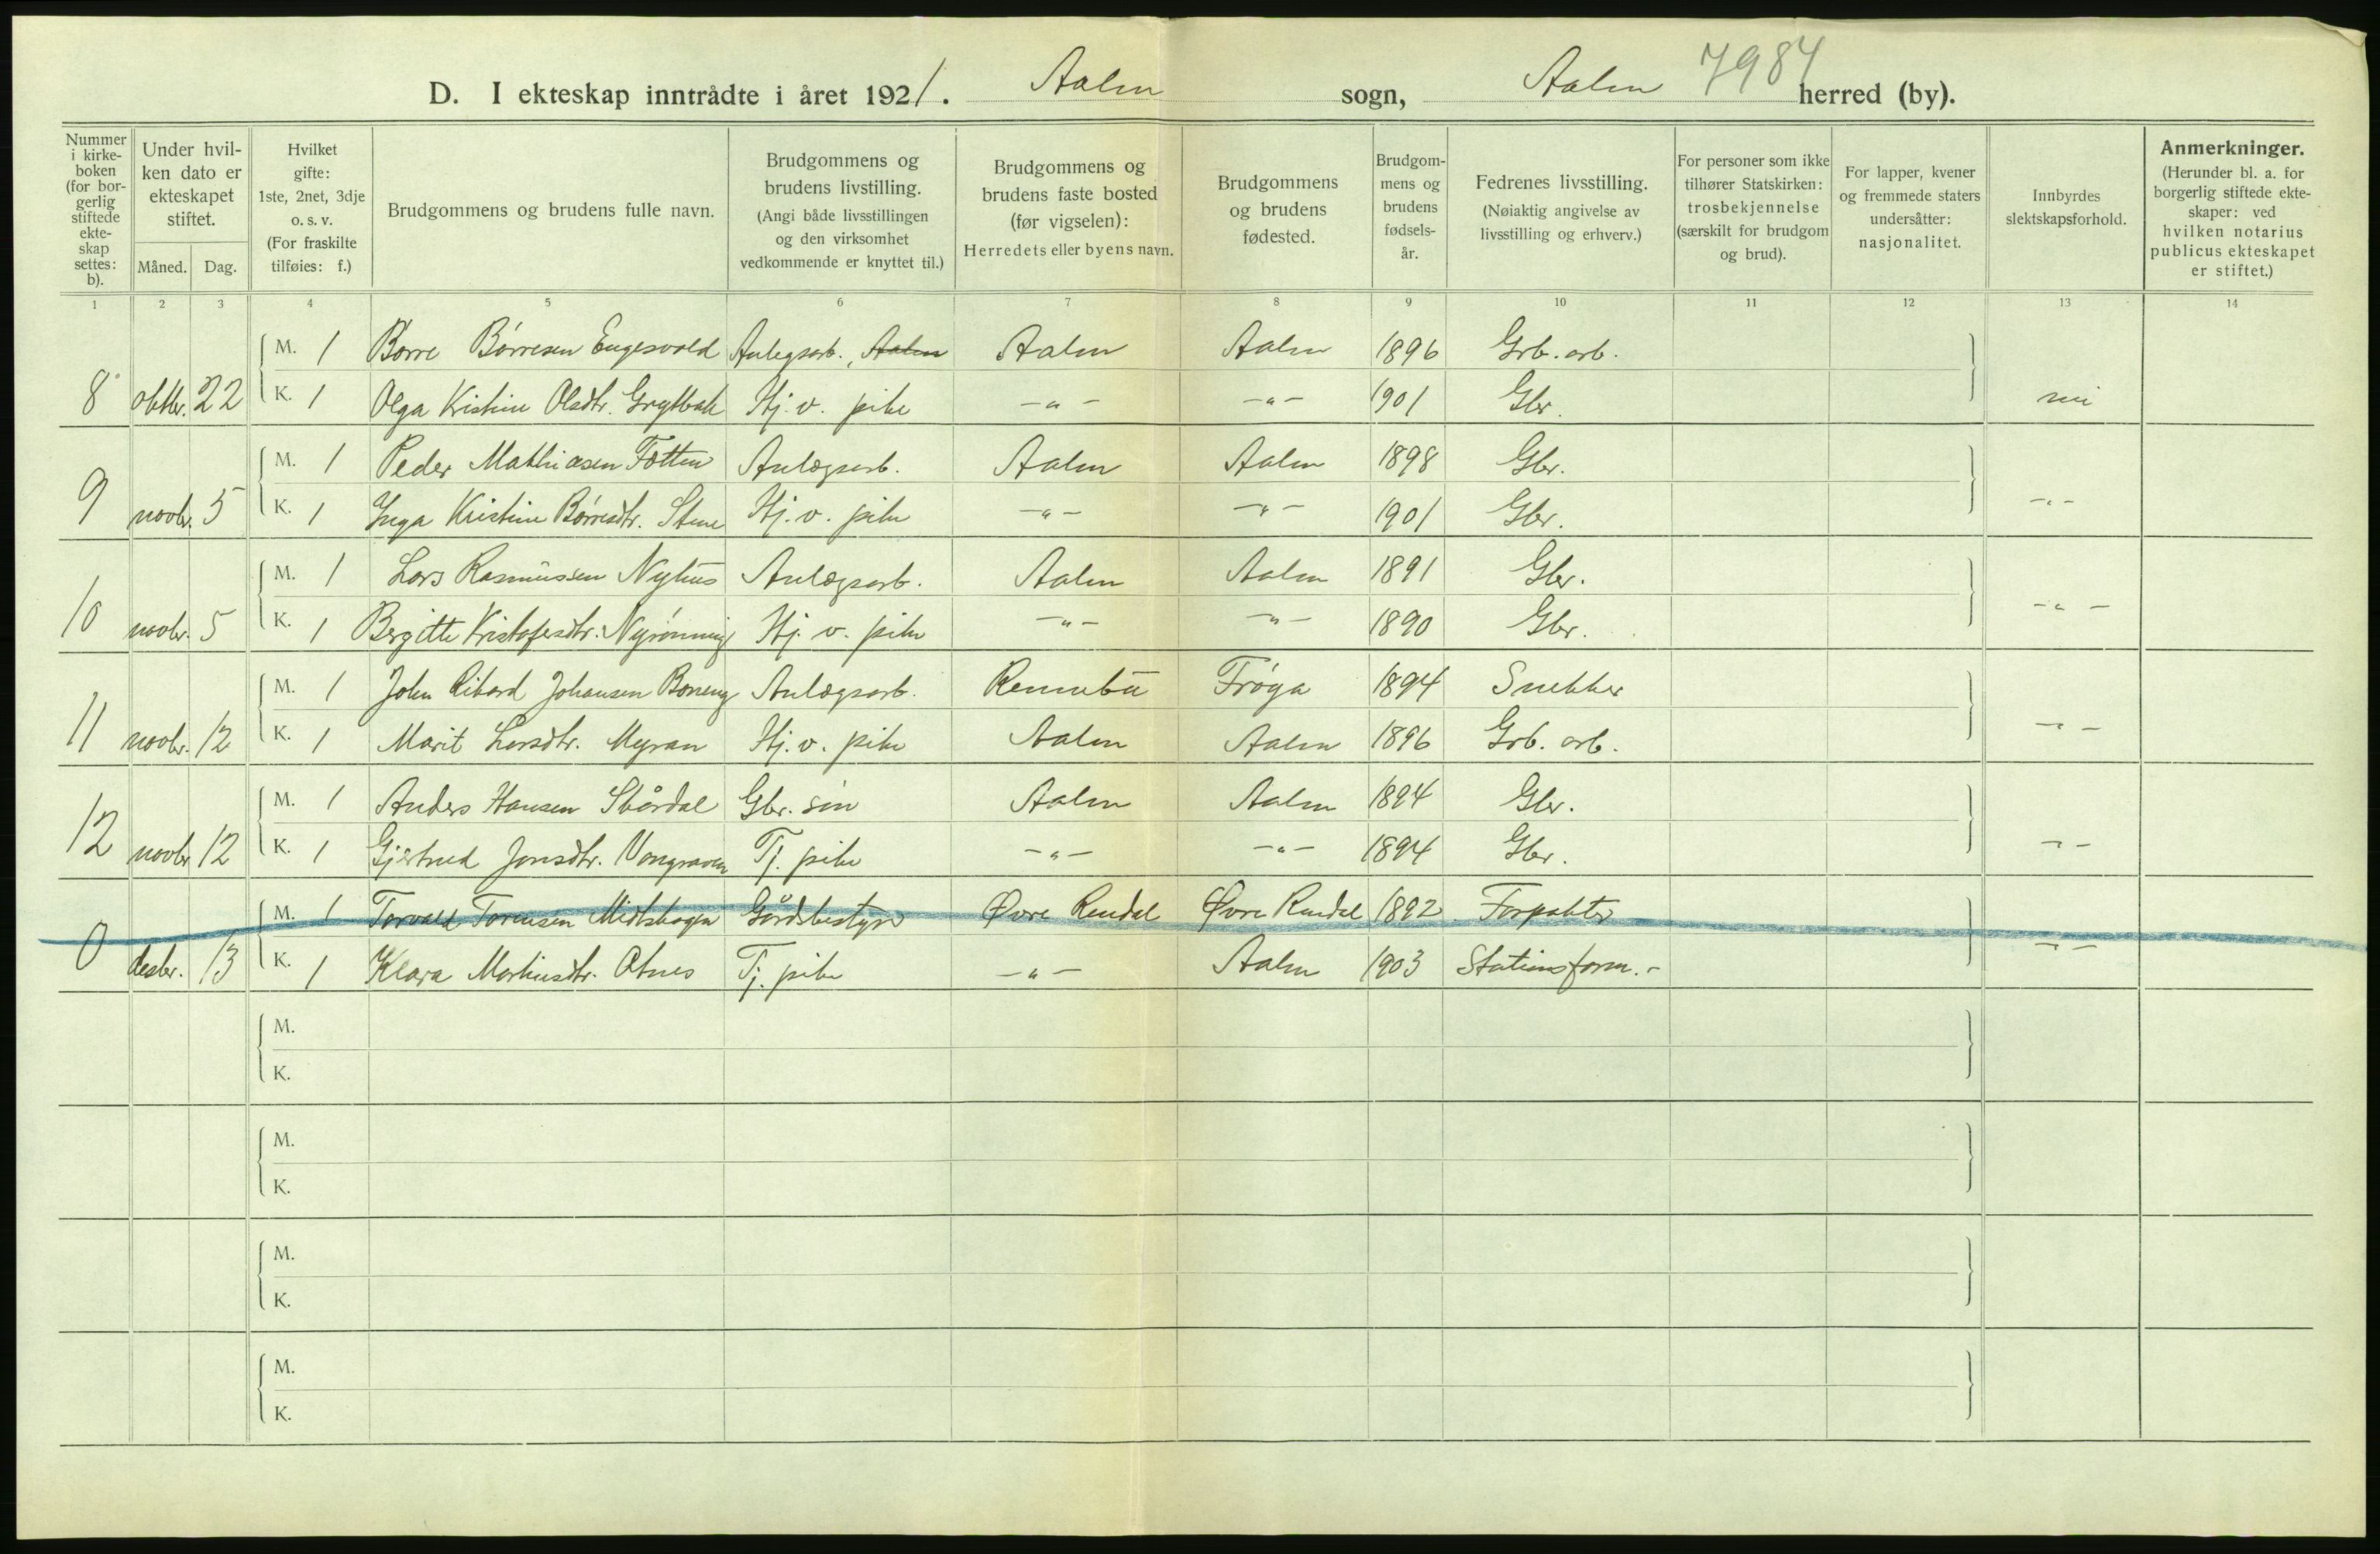 7984
D. I ekteskap inntrådte i året 1921. Aalen sogn, Aalen herred (by).
Nummer i kirke-boken (for bor-gerlig stiftede ekte-skap settes: b).
Under hvil-ken dato er ekteskapet stiftet.
Måned. Dag.
Hvilket gifte: 1ste, 2net, 3dje o. s. v. (For fraskilte tilføies: f.)
Brudgommens og brudens fulle navn.
Brudgommens og brudens livstilling. (Angi både livsstillingen og den virksomhet vedkommende er knyttet til.)
Brudgommens og brudens faste bosted (før vigselen): Herredets eller byens navn.
Brudgommens og brudens fødested.
Brudgom-mens og brudens fødsels-år.
Fedrenes livsstilling. (Nøiaktig angivelse av livsstilling og erhverv.)
For personer som ikke tilhører Statskirken: trosbekjennelse (særskilt for brudgom og brud).
For lapper, kvener og fremmede staters undersåtter: nasjonalitet.
Innbyrdes slektskapsforhold.
Anmerkninger. (Herunder bl. a. for borgerlig stiftede ekte-skaper: ved hvilken notarius publicus ekteskapet er stiftet.)
1 2 3 4 5 6 7 8 9 10 11 12 13 14
M. 1 Børre Børresen Engesvold Anlegsarb., Aalen Aalen Aalen 1896 Grb. arb.
8 oktbr. 22 K. 1 Olga Kristine Olsdtr. Grytbak Hj. v. pike -„- -„- 1901 Gbr.
M. 1 Peder Mathiasen Tøtten Anlægsarb. Aalen Aalen 1898 Gbr.
9 novbr. 5 K. 1 Inga Kristine Børresdtr. Stene Hj. v. pike -„- -„- 1901 Gbr. -„-
M. 1 Lars Rasmussen Nyhus Anlægsarb. Aalen Aalen 1891 Gbr.
10 novbr. 5 K. 1 Bergitte Kristofersdtr. Nyrønning Hj. v. pike -„- -„- 1890 Gbr. -„-
M. 1 John Rikard Johansen Borreng Anlægsarb. Rennebu Frøya 1894 Snekker
11 novbr. 12 K. 1 Marit Larsdtr. Myran Hj. v. pike Aalen Aalen 1896 Grb. arb. -„-
M. 1 Anders Hansen Skårdal Gbr. søn Aalen Aalen 1894 Gbr.
12 novbr 12 K. 1 Gjertrud Jonsdtr. Vongraven Tj. pike -„- -„- 1894 Gbr. -„-
M. 1 Torvald Torensen Midtskogen Gårdsbestyrer Øvre Rendal Øvre Rendal 1892 Forpakter
0 desbr. 13 K. 1 Klara Martinsdtr. Atnes Tj. pike -„- Aalen 1903 Stationsform. -„-
M.
K.
M.
K.
M.
K.
M.
K.